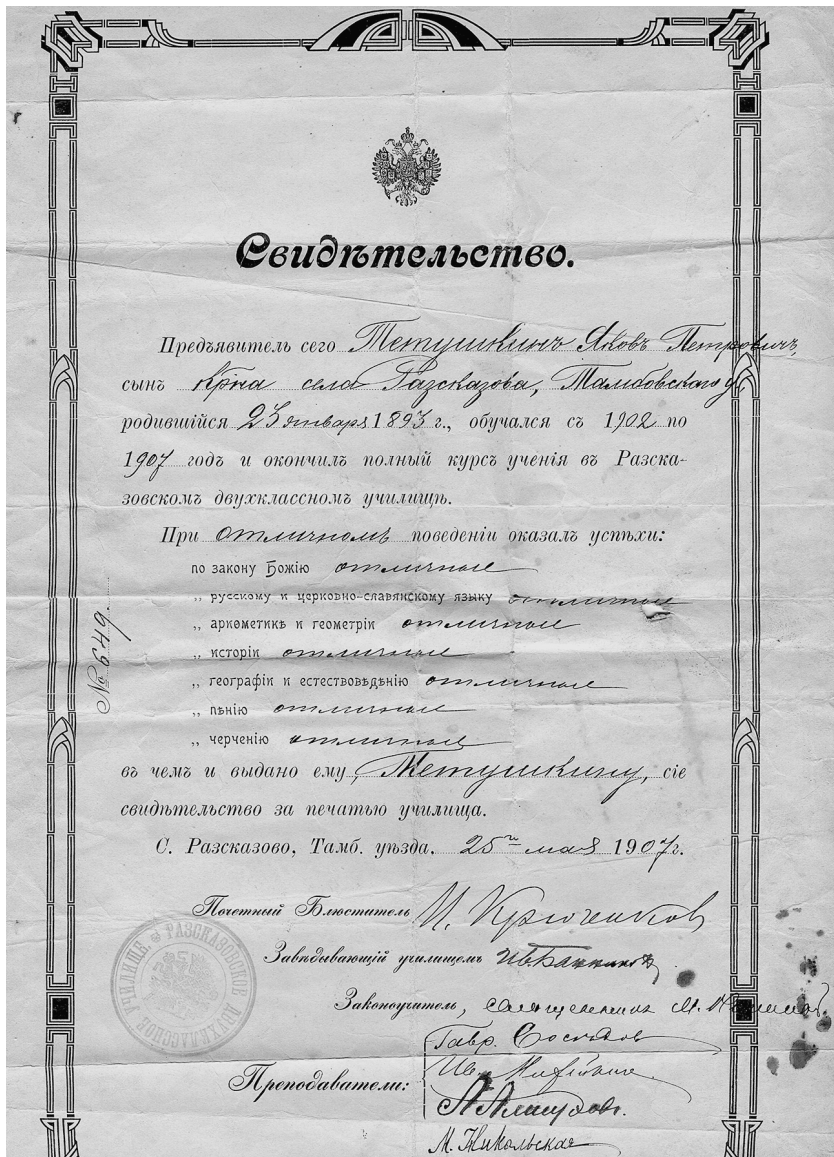 Свидѣтельство.
Предъявитель сего Тетушкинъ Яковъ Петровичъ,
сынъ кр̃на села Разсказова, Тамбовскаго у.
родившійся 23 января 1893 г., обучался съ 1902 по
1907 годъ и окончилъ полный курсъ ученія въ Разска-
зовскомъ двухклассномъ училищѣ.
При отличномъ поведеніи оказалъ успѣхи:
по закону Божію отличные
„ русскому и церковно-славянскому языку отличные
„ ариѳметикѣ и геометріи отличные
„ исторіи отличные
„ географіи и естествовѣдѣнію отличные
„ пѣнію отличные
„ черченію отличные
въ чемъ и выдано ему, Тетушкину, сіе
свидѣтельство за печатью училища.
С. Разсказово, Тамб. уѣзда. 25го мая 1907 г.
№ 649.
Почетный Блюститель И. Крюченков
Завѣдывающій училищемъ Ив.
Законоучитель, священникъ М.
Преподаватели: Гавр.
Ив.
А.
М. Никольская
РАЗСКАЗОВСКОЕ ДВУХКЛАССНОЕ УЧИЛИЩЕ